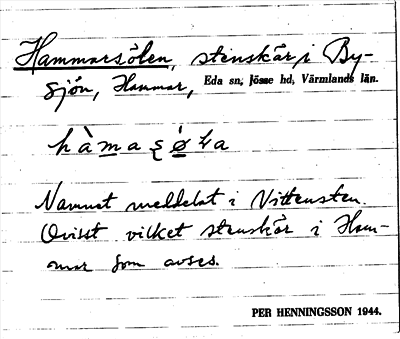 Hammarsölen, stenskär i By-
sjön, Hammar, Eda sn, Jösse hd, Värmlands län.
Namnet meddelat i Vittensten.
Ovisst vilket stenskär i Ham-
mar som avses.
PER HENNINGSSON 1944.